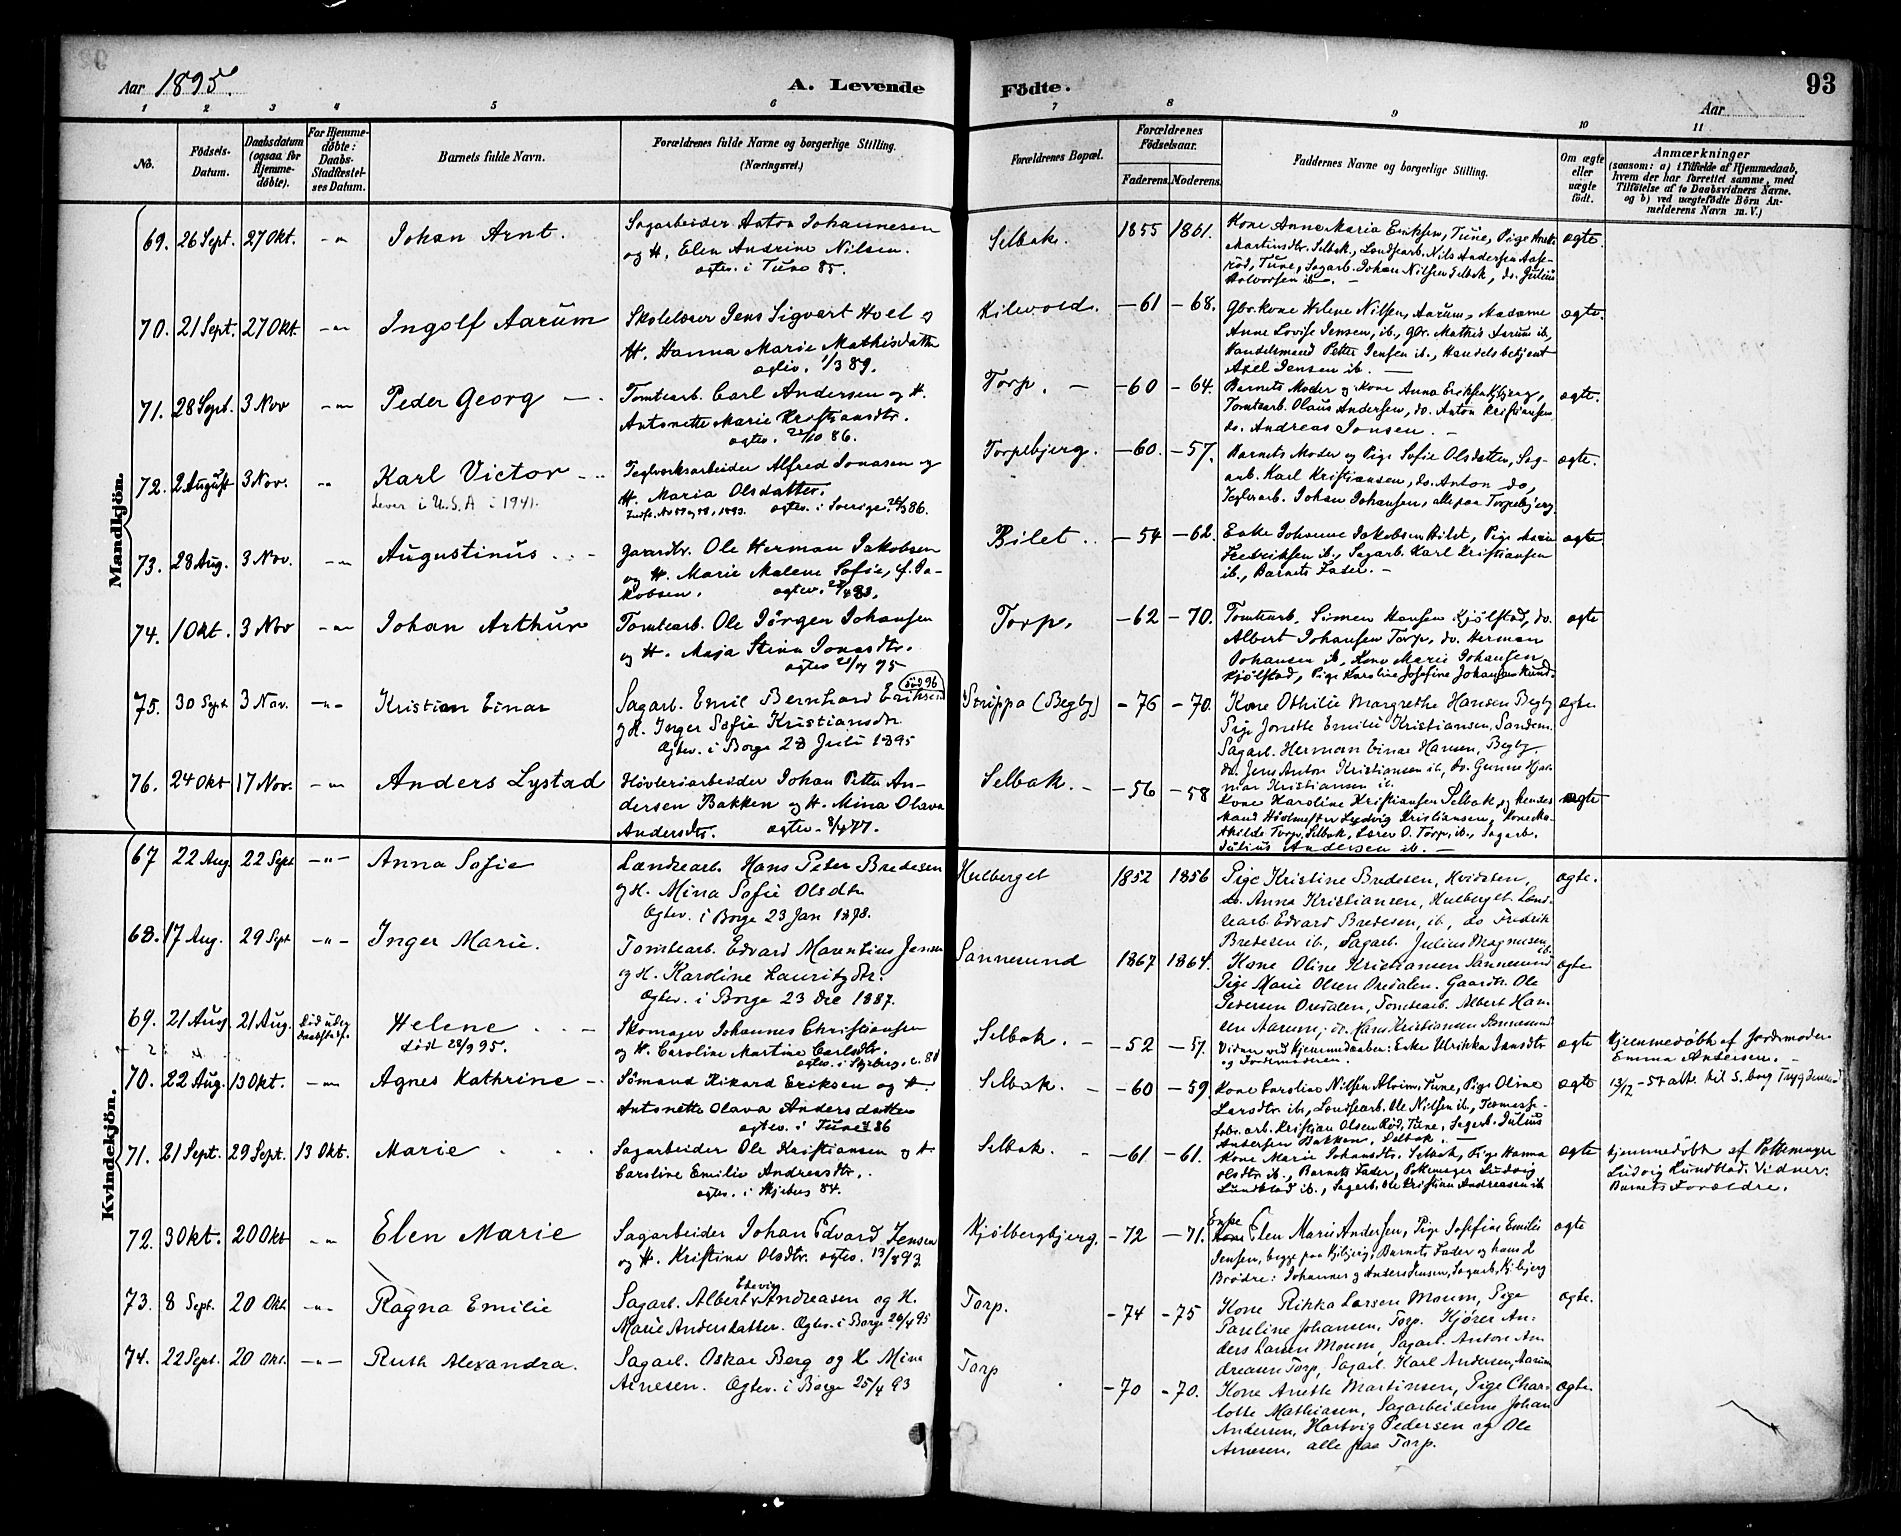 Aar 1895. A. Levende
Födte. 93
Aar
1 2 3 4 5 6 7 8 9 10 11
No.
Födsels-
Datum.
Daabsdatum
(ogsaa for
Hjemme-
döbte).
For Hjemme-
döbte:
Daabs-
Stadfæstel-
ses Datum.
Barnets fulde Navn.
Forældrenes fulde Navne og borgerlige Stilling.
(Næringsvei.)
Forældrenes Bopæl.
Forældrenes
Födselsaar.
Faderens. Moderens.
Faddernes Navne og borgerlige Stilling.
Om ægte
eller
uægte
födt.
Anmærkninger
(saasom: a) i Tilfælde af Hjemmedaab,
hvem der har forrettet samme, med
Tilföielse af to Daabsvidners Navne.
og b) ved uægtefödte Börn An-
melderens Navn m. V.)
Mandkjön.
69. 26 Sept. 27 Okt. -"- Johan Arnt.
Sagarbeider Anton Johannesen
og H. Elen Andrine Nilsen.
ægtev. i Tune 85.
Selbak. 1855 1861.
Kone Anne Maria Eriksen, Tune, Pige
Martinsdtr. Selbak, Landsearb. Nils Andersen Aase-
röd, Tune, Sagarb. Johan Nilsen Selbak, do. Julius
Halvorsen ib. -
ægte.
70. 21 Sept. 27 Okt -"- Ingolf Aarum
Skolelærer Jens Sigvart Hoel og
H. Hanna Marie Mathisdatter
ægtev. 1/3 89.
Kilevold. -61 -68.
Gbr.kone Helene Nilsen, Aarum, Madame
Anne Lovise Jensen, ib., gbr. Mathis Aarum ib.,
Handelsmand Petter Jensen ib., Handelsbetjent
Axel Jensen ib. -
ægte.
71. 28 Sept. 3 Nov -"- Peder Georg -
Tomtearb. Carl Andersen og H.
Antonette Marie Kristiansdtr.
ægtev. 22/10 86.
Torp. - -60 -64.
Barnets Moder og Kone Anna Eriksen Kjbjerg,
Tomtearb. Olaus Andersen, do. Anton Kristiansen
do. Andreas Jonsen. -
ægte.
72. 2 August 3 Nov. -"- Karl Victor -
Lever i U.S.A i 1941.
Teglverksarbeider Alfred Jonasen og
H. Maria Olsdatter.
ægtev. i Sverige 86.
Torpebjerg. -60. -57.
Barnets Moder og Pige Sofie Olsdatter, Sag-
arb. Karl Kristiansen, do. Anton do,
Teglv.arb. Johan Johansen, alle paa Torpebjerg.
ægte.
73. 28 Aug. 3 Nov. -"- Augustinus . . -
Gaardbr. Ole Herman Jakobsen
og H. Marie Malene Sofie, f. Ja-
kobsen. ægtev. 83.
Bilet.. -54 -62.
Enke Johanne Jakobsen Bilet, Pige Marie
Fredriksen ib., Sagarb. Karl Kristiansen
ib., Barnets Fader. -
ægte
74. 1 Okt. 3 Nov -"- Johan Arthur
Tomtearb. Ole Jörgen Johansen
og H. Maja Stina Jonasdtr.
ægtev 95
Torp. -62 -70.
Tomtearb. Simen Hansen Kjölstad, do.
Albert Johansen Torp, do. Herman
Johansen ib, Kone Marie Johansen
Kjölstad, Pige Karoline Josefine Johansen Lund.
ægte
75. 30 Sept. 3 Nov. -"- Kristian Einar
död 96
Sagarb. Emil Bernhard Eriksen
og H. Inger Sofie Kristiansdtr
Ægtev. i Borge 28 Juli 1895
Strippa (Begby) -76 -70.
Kone Othilie Margrethe Hansen Begby
Pige Jonette Emilie Kristiansen, Sandem.
Sagarb. Herman Einar Hansen, Begby.
do. Jens Anton Kristiansen ib, do. Gunnar Hjal-
mar Kristiansen ib.
ægte
76. 24 Okt 17 Nov. -"- Anders Lystad
Hövleriarbeider Johan Petter An-
dersen Bakken og H. Mina Olava
Andersdtr. ægtev. 77.
Selbak. - -56 -58
Kone Karoline Kristiansen Selbak, og hendes
Mand Hövlmester Ludvig Kristiansen, Kone Ma-
thilde Torp, Selbak, Lærer O. Torp, ib., Sagarb.
Julius Andersen ib. -
ægte
Kvindekjön.
67 22 Aug 22 Sept -"- Anna Sofie
Landsearb. Hans Peter Bredesen
og H. Mina Sofie Olsdtr
Ægtev. i Borge 23 Jan 1878.
Hulberget 1852 1856
Pige Kristine Bredesen, Hvidsten,
do. Anna Kristiansen, Hulberget Land-
searb. Edvard Bredesen, ib, do Fredrik
Bredesen ib, Sagarb. Julius Magnusen ib.
ægte.
68. 17 Aug. 29 Sept -"- Inger Marie.
Tomtearb. Edvard Marentius Jensen
og H. Karoline Lauritzdtr.
Ægtev. i Borge 23 Dec 1887.
Sannesund 1867 1864.
Kone Oline Kristiansen Sannesund
Pige Marie Olsen Oredalen. Gaardbr. Ole
Pedersen Oredalen, Tomtearb. Albert Han-
sen Aarum, do. Hans Kristiansen Sannesund
ægte
69. 21 Aug. 21 Aug. Död uden Daabstadf. Helene . . -
död 28/9 95.
Skomager Johannes Christiansen
og H. Caroline Martine Carlsdtr.
ægtev. i Skjeberg, 81
Selbak. - -52 -57.
Vidner ved Hjemmedaaben: Enke Ulrikke Jansdtr
og Jordemoderen.
ægte
Hjemmedöbt af Jordemoder
Emma Andersen. -
70. 22 Aug. 13 Okt. -"- Agnes Kathrine -
Sömand Rikard Eriksen og H.
Antonette Olava Andersdatter
ægtev. i Tune 86
Selbak. - -60 -59
Kone Caroline Nilsen Alvim, Tune, Pige Oline
Larsdtr ib., Landsearb. Ole Nilsen ib.,
fabr. arb. Kristian Olsen Röd, Tune, Sagarb. Julius
Andersen Bakken, Selbak. -
ægte
13/12 - 57 att. til S.borg Trygdekasse
71. 21 Sept. 29 Sept. 13 Okt. Marie . . .
Sagarbeider Ole Kristiansen og H
Caroline Emilie Andreasdtr.
ægtev. i Skjeberg 84.
Selbak. - -61 -61.
Kone Marie Johansdtr. Selbak, Pige Hanna
Olsdtr ib., Barnets Fader, Pottemager Ludvig
Lundblad ib., Sagarb. Ole Kristian Andreasen ib
ægte
Hjemmedöbt af Pottemager
Ludvig Lundblad. Vidner:
Barnets Forældre.
72. 3 Okt. 20 Okt -"- Elen Marie
Sagarbeider Johan Edvard Jensen
og H. Kristina Olsdtr. ægtev. 93
Kjölbergbjerg. -72 -71.
Enke Elen Marie Andersen, Pige Josefine Emilie
Jensen, begge paa Kjbjerg, Barnets Fader og hans 2
Brödre: Johannes og Anders Jensen, Sagarb, Kjbjerg
ægte
73. 8 Sept. 20 Okt. -"- Ragna Emilie
Edevin
Sagarb. Albert Andreasen og H.
Marie Andersdatter. Ægtev. i Borge 20/4 95
Torp. -74 -75
Kone Rikka Larsen Moum, Pige
Pauline Johansen, Torp. Kjörer An-
ders Larsen Moum, Sagarb. Anton An-
dreasen Torp, Sagarb. Karl Andersen, Aarum
ægte.
74. 22 Sept. 20 Okt. -"- Ruth Alexandra.
Sagarb. Oskar Berg og H. Mina
Arnesen. Ægtev. i Borge 25/4 93
Torp -70 -70.
Kone Anette Martinsen, Pige Char-
lotte Mathiasen, Sagarbeiderne Johan
Andersen, Hartvig Pedersen og Ole
Arnesen, alle paa Torp.
ægte.